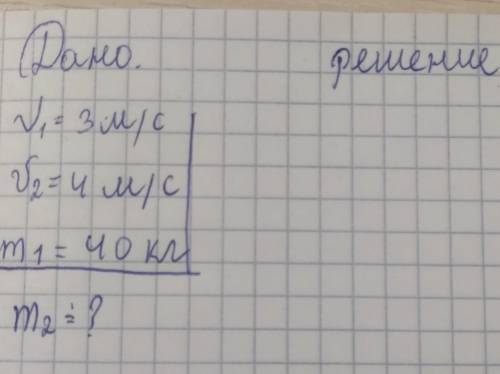 Дано. решение
V₁ = 3 м/с
V₂ = 4 м/с
m₁ = 40 кг
m₂ = ?